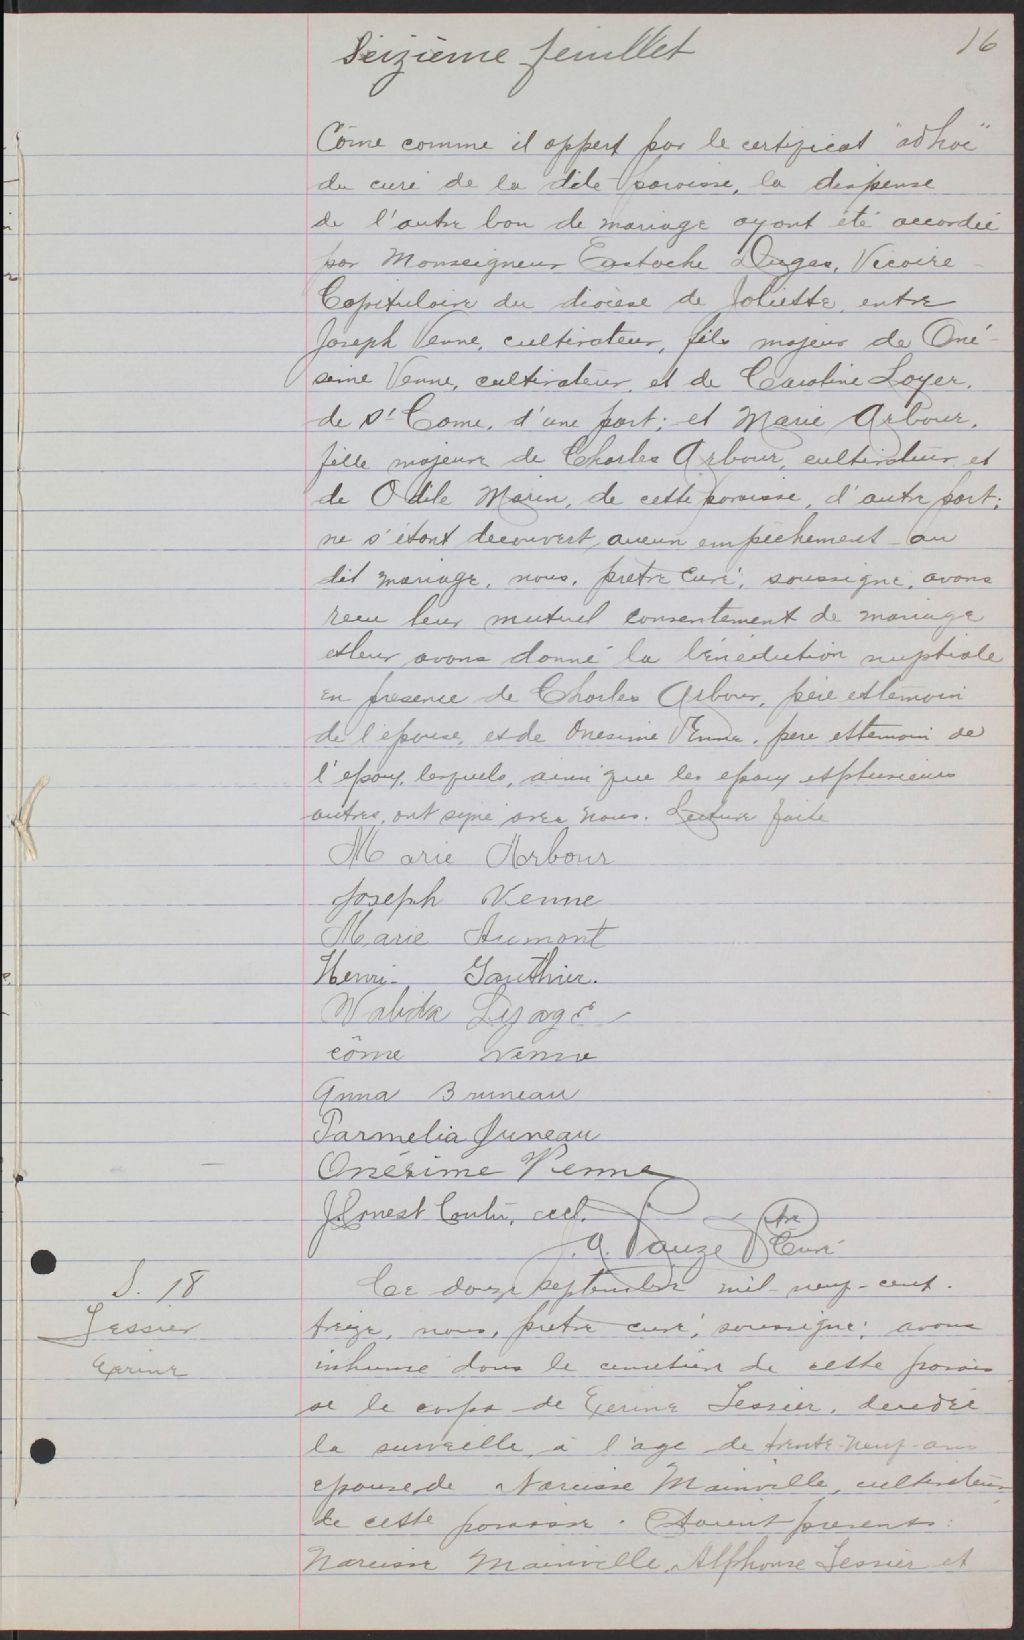 Seizième feuillet
16
Côme comme il appert par le certificat "ad hoc"
du curé de la dite paroisse, la dispense
de l'autre ban de mariage ayant été accordée
par Monseigneur Eustache Dugas, Vicaire
Capitulaire du diocèse de Joliette, entre
Joseph Venne, cultivateur, fils majeur de Oné-
sime Venne, cultivateur, et de Caroline Loyer,
de St Come, d'une part; et Marie Arbour,
fille majeure de Charles Arbour, cultivateur et
de Odile Marin, de cette paroisse, d'autre part;
ne s'étant decouvert aucun empêchement au
dit mariage, nous, prêtre curé, soussigné, avons
recu leur mutuel consentement de mariage
et leur avons donné la bénédiction nuptiale
en presence de Charles Arbour, père et temoin
de l'épouse, et de Onesime Venne, pere et temoin de
l'epoux, lesquels, ainsi que les epoux et plusieurs
autres, ont signé avec nous. Lecture faite
Marie Arbour
Joseph Venne
Marie Aumont
Henri Gauthier.
Walida Lesage
côme venne
Anna Bruneau
Parmelia Juneau
Onésime Venne
J. Ernest Coutu, eccl.
J. A. Pauzé Ptre
Curé
S. 18
Tessier
Exerine
Ce douze septembre mil neuf-cent-
treize, nous, prêtre curé, soussigné, avons
inhumé dans le cimetière de cette parois
se le corps de Exerine Tessier, decedée
la surveille, à l'age de trente-neuf ans
epouse de Narcisse Mainville, cultivateur
de cette paroisse. Etaient presents:
Narcisse Mainville, Alphonse Tessier et